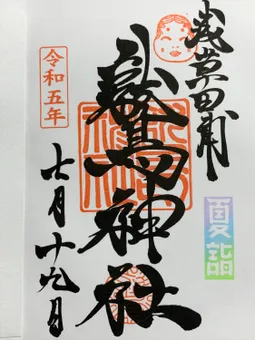 浅草田甫
夏詣
鷲神社
令和五年
七月十九日